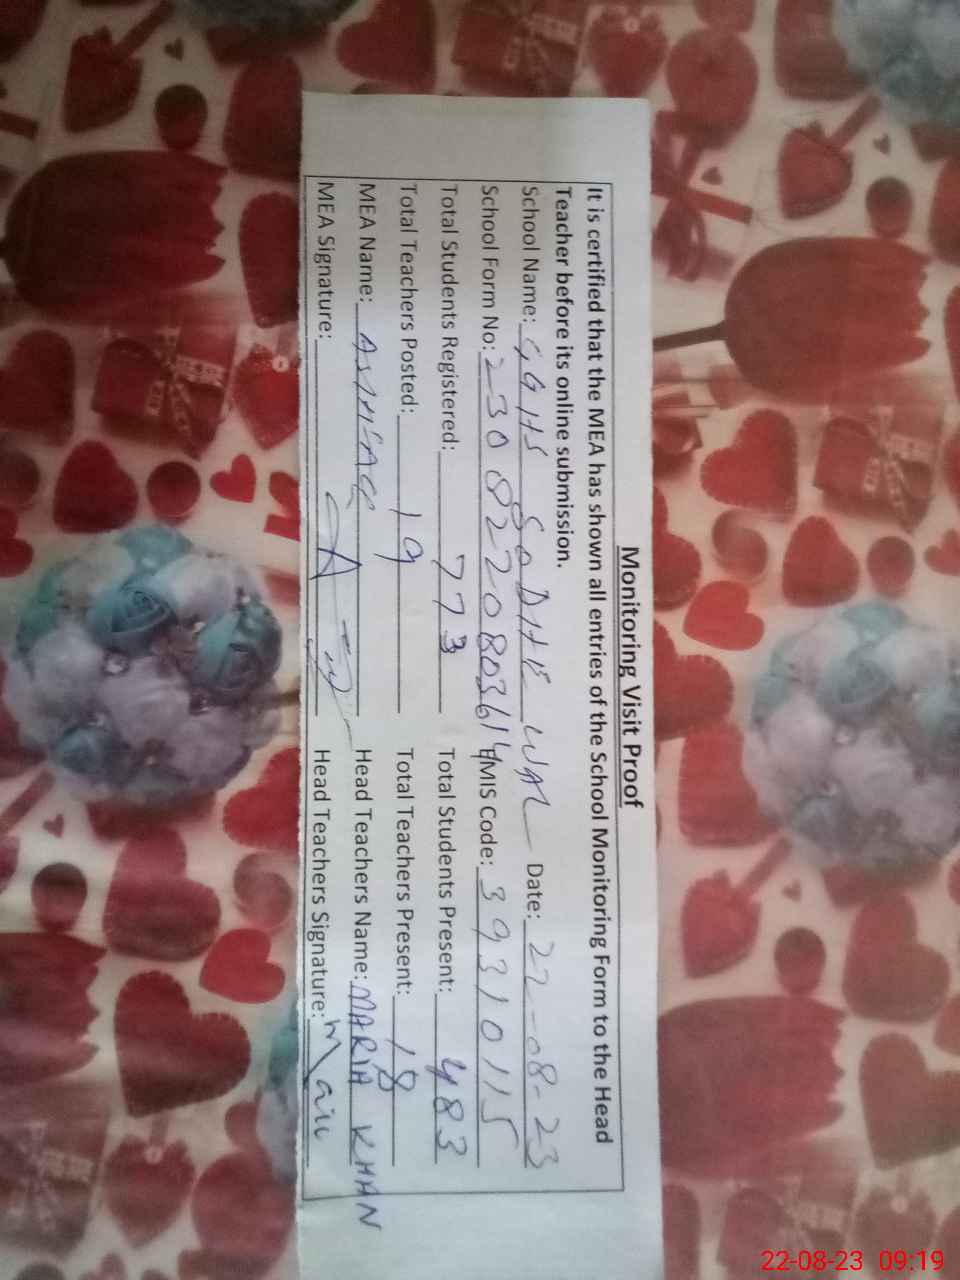 Monitoring Visit Proof
It is certified that the MEA has shown all entries of the School Monitoring Form to the Head
Teacher before its online submission.
School Name: GGHS SODHE WAL Date: 22-08-23
School Form No: 2308220803614 EMIS Code: 39310115
Total Students Registered: 773 Total Students Present: 483
Total Teachers Posted: 19 Total Teachers Present: 18
MEA Name: Head Teachers Name: MARIA KHAN
MEA Signature: Head Teachers Signature:
22-08-23 09:19